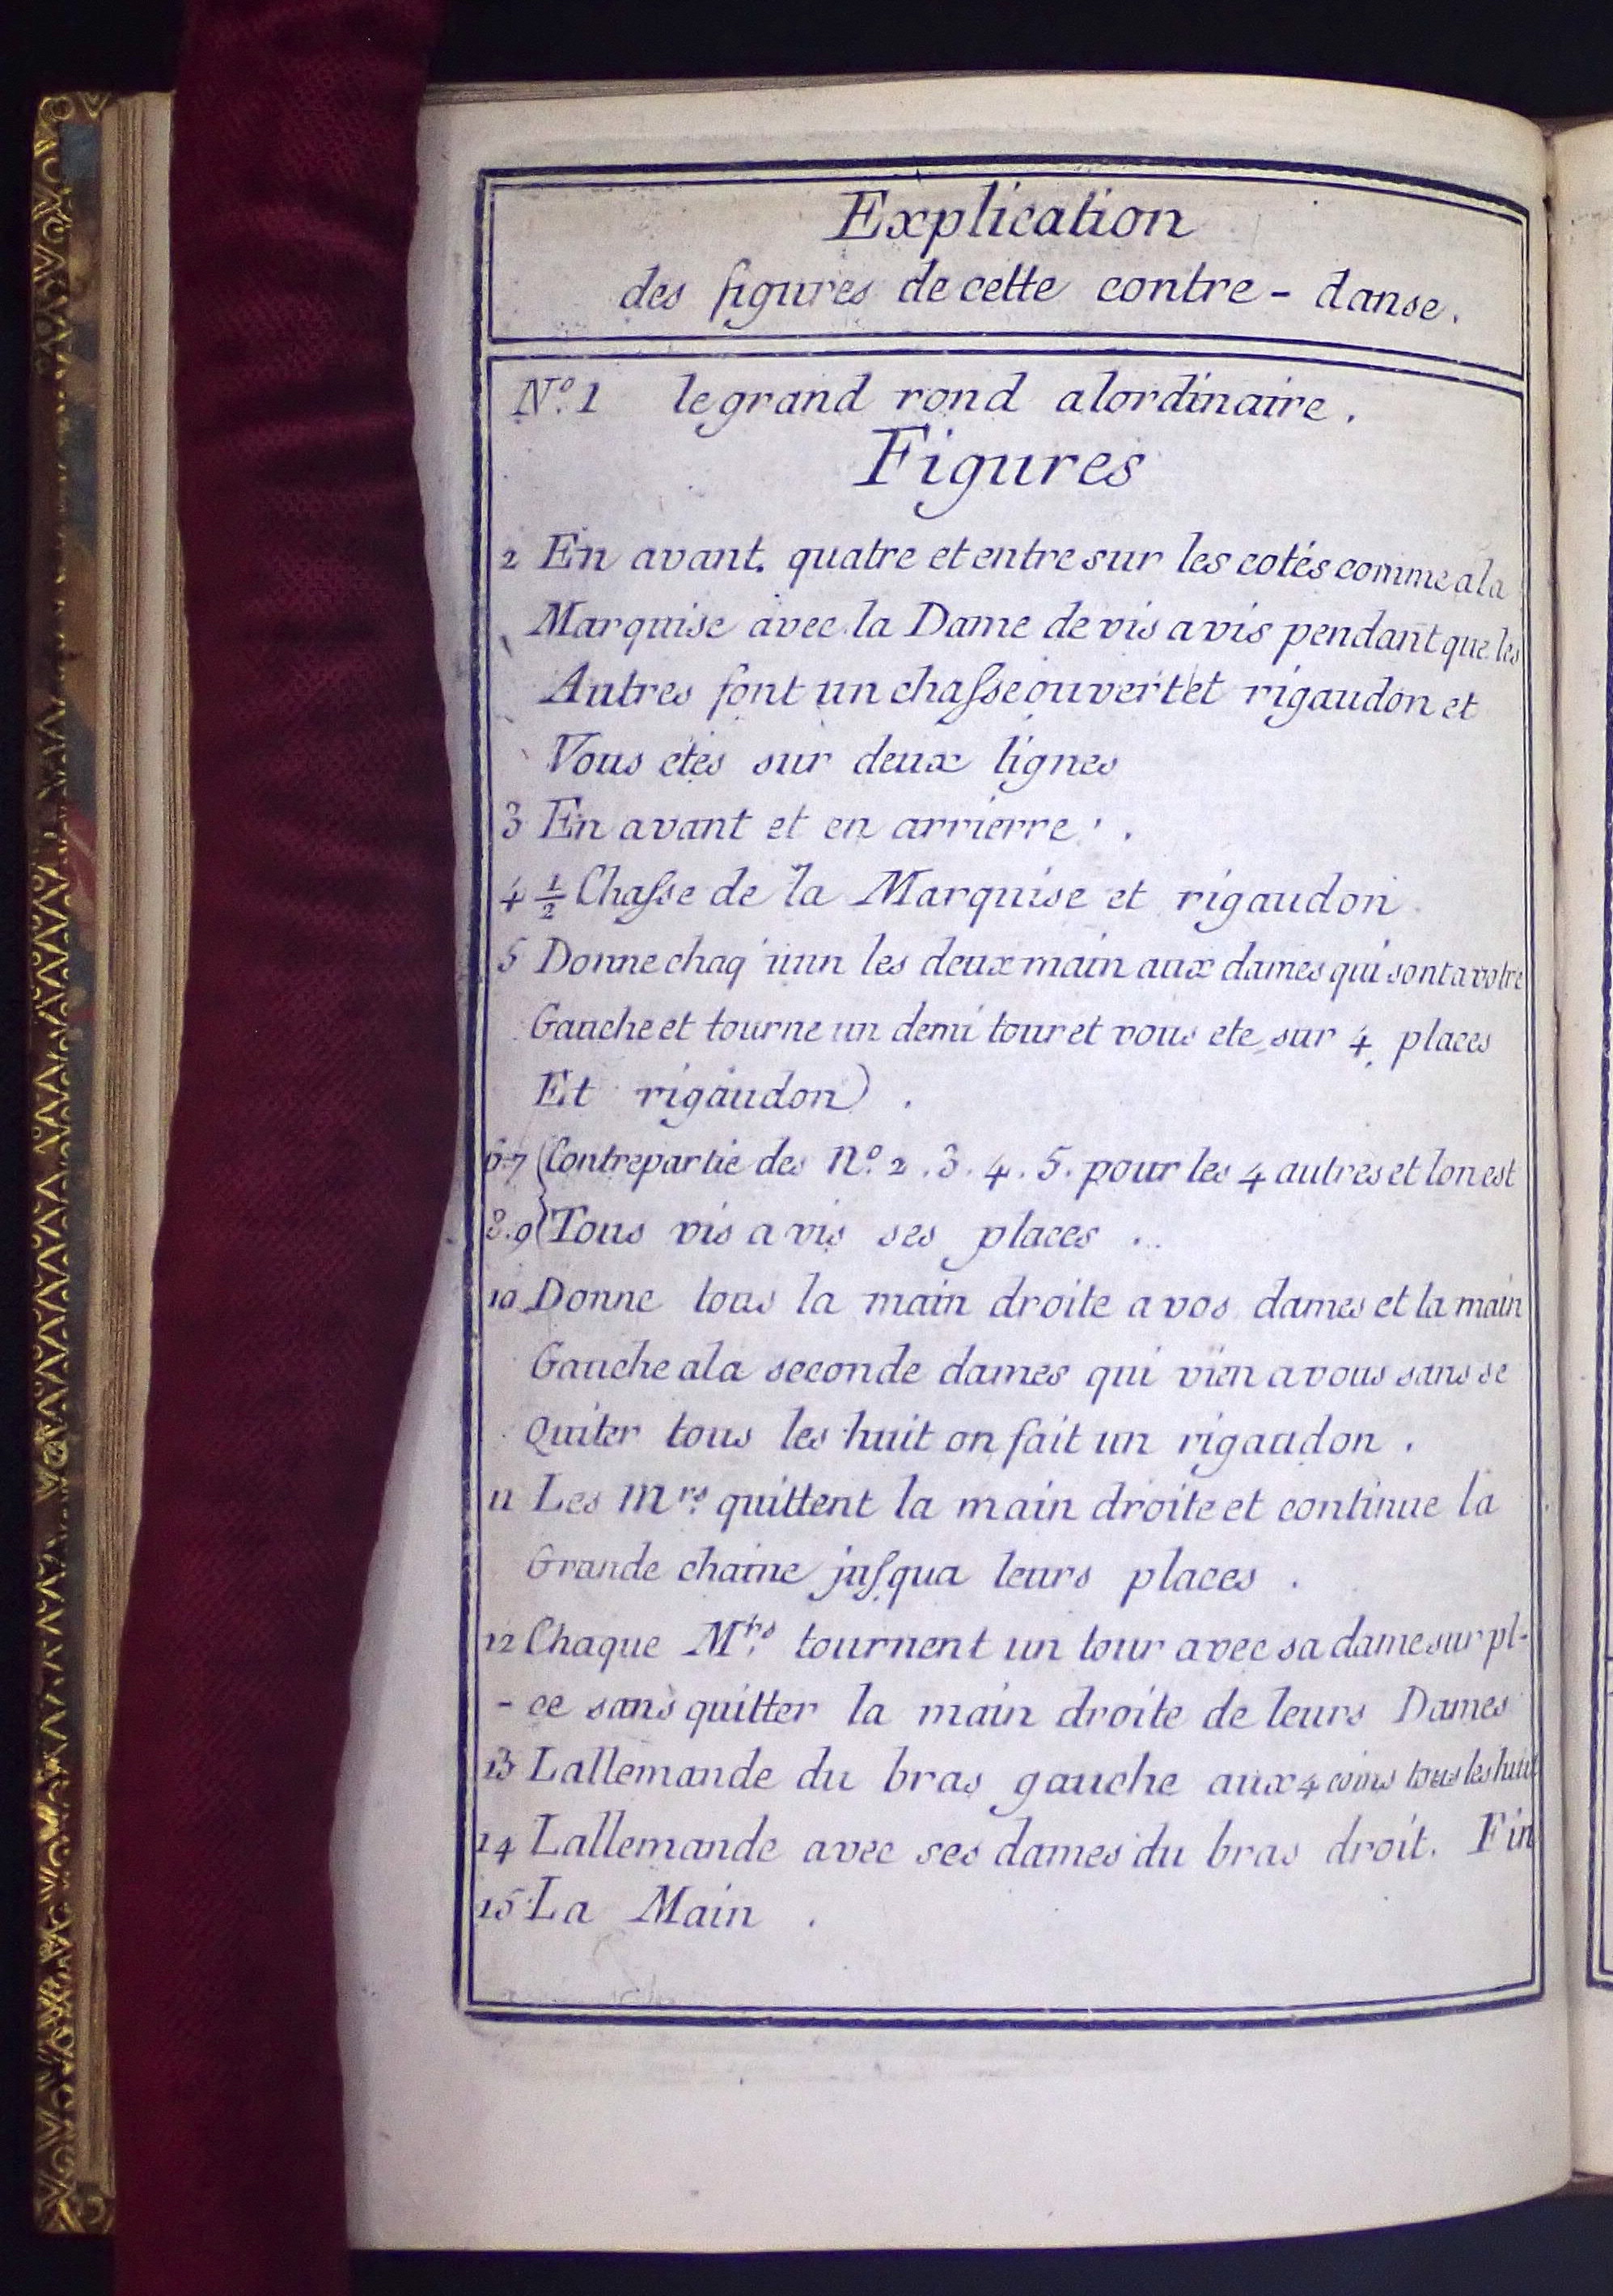 Explication
des figures de cette contre - danse.
N.º 1 le grand rond alordinaire.
Figures
2 En avant. quatre et entre sur les cotés comme ala
Marquise avec la Dame de vis a vis pendant que les
Autres font un chaſse ouvert et rigaudon et
Vous etes sur deux lignes
3 En avant et en arrierre.
4 ½ Chaſse de la Marquise et rigaudon
5 Donne chaq'uun les deux main aux dames qui sont a votre
Gauche et tourne un demi tour et vous ete sur 4 places
Et rigaudon) .
6.7 (Contrepartie des N.º 2 . 3 . 4 . 5 . pour les 4 autres et lon est
8.9 (Tous vis a vis ses places ..
10 Donne tous la main droite a vos dames et la main
Gauche ala seconde dames qui vien a vous sans se
Quiter tous les huit on fait un rigaudon .
11 Les Mrs. quittent la main droite et continue la
Grande chaine juſqua leurs places .
12 Chaque Mrs. tournent un tour avec sa dame sur pl-
- ce sans quitter la main droite de leurs Dames
13 Lallemande du bras gauche aux 4 coins tous les huit
14 Lallemande avec ses dames du bras droit. Fin
15 La Main .